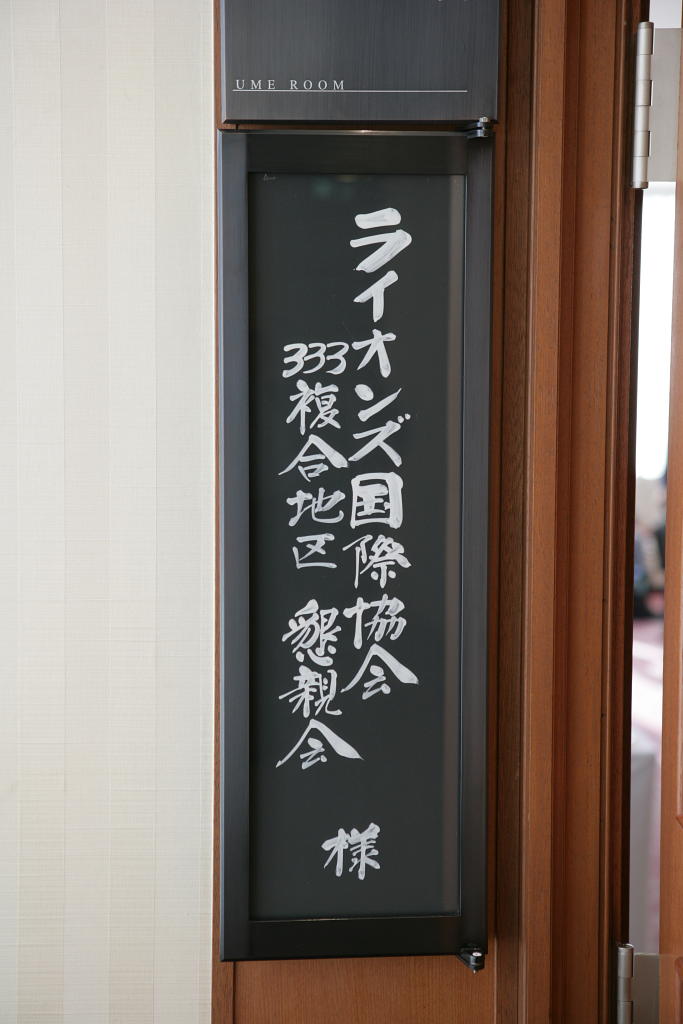 UME ROOM
ライオンズ国際協会
333複合地区 懇親会
様